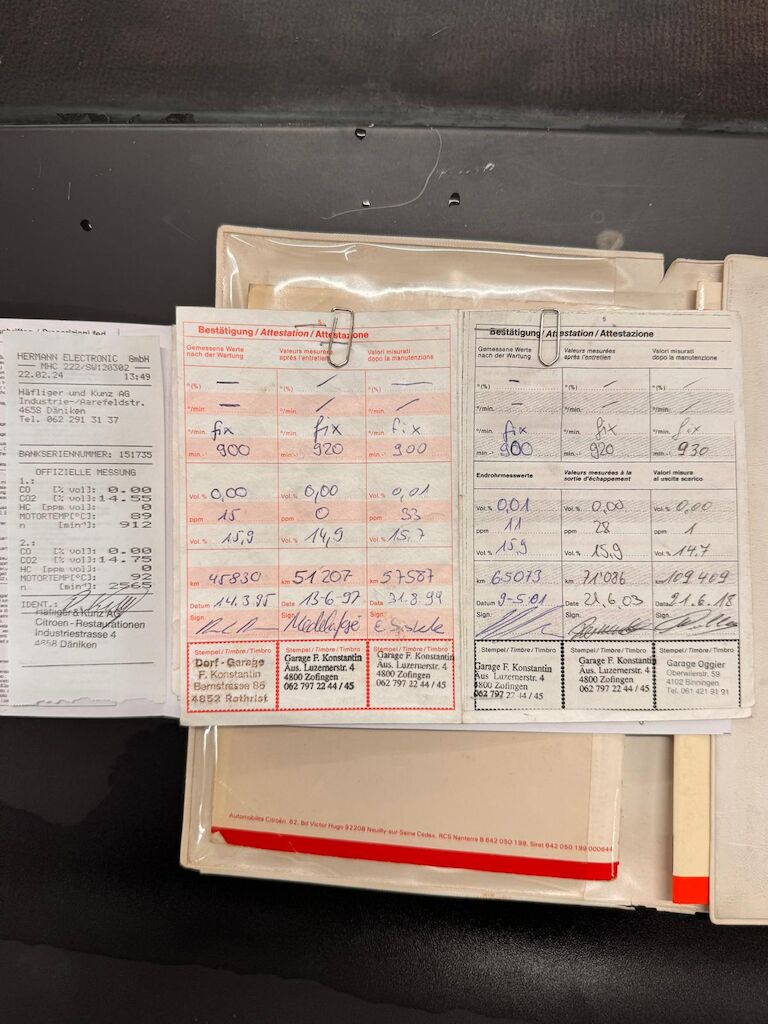 HERMANN ELECTRONIC GmbH
MHC 222/SW120302
22.02.24 13:49
Häfliger und Kunz AG
Industrie-/Aarefeldstr.
4658 Däniken
Tel. 062 291 31 37
BANKSERIENNUMMER: 151735
OFFIZIELLE MESSUNG
1.:
CO [% vol]: 0.00
CO2 [% vol]: 14.55
HC [ppm vol]: 0
MOTORTEMP[°C]: 89
n [min⁻¹]: 912
2.:
CO [% vol]: 0.00
CO2 [% vol]: 14.75
HC [ppm vol]: 0
MOTORTEMP[°C]: 92
n [min⁻¹]: 2565
IDENT.:
Häfliger & Kunz AG
Citroen - Restaurationen
Industriestrasse 4
4658 Däniken
5
Bestätigung / Attestation / Attestazione
Gemessene Werte nach der Wartung
Valeurs mesurées après l'entretien
Valori misurati dopo la manutenzione
°(%) — °(%) / °(%) —
°/min. — °/min. / °/min. /
°/min. fix °/min. fix °/min. fix
min.-¹ 900 min.-¹ 920 min.-¹ 900
Vol.% 0,00 Vol.% 0,00 Vol.% 0,01
ppm 15 ppm 0 ppm 33
Vol.% 15,9 Vol.% 14,9 Vol.% 15,7
km 45830 km 51'207 km 57587
Datum 14.3.95 Date 13-6-97 Data 31.8.99
Sign. Sign. Sign.
Stempel/Timbre/Timbro Stempel/Timbre/Timbro Stempel/Timbre/Timbro
Dorf-Garage
F. Konstantin
Bernstrasse 86
4852 Rothrist
Garage F. Konstantin
Äus. Luzernerstr. 4
4800 Zofingen
062 797 22 44 / 45
Garage F. Konstantin
Äus. Luzernerstr. 4
4800 Zofingen
062 797 22 44 / 45
5
Bestätigung / Attestation / Attestazione
Gemessene Werte nach der Wartung
Valeurs mesurées après l'entretien
Valori misurati dopo la manutenzione
°(%) — °(%) / °(%) /
°/min. — °/min. / °/min. /
°/min. fix °/min. fix °/min. fix
min.-¹ 900 min.-¹ 920 min.-¹ 930
Endrohrmesswerte
Valeurs mesurées à la sortie d'échappement
Valori misura al uscita scarico
Vol.% 0,01 Vol.% 0,00 Vol.% 0,00
ppm 11 ppm 28 ppm 1
Vol.% 15,9 Vol.% 15,9 Vol.% 14.7
km 65073 km 71'086 km 109409
Datum 9-5.01 Date 21.6.03 Data 21.6.13
Sign. Sign. Sign.
Stempel/Timbre/Timbro Stempel/Timbre/Timbro Stempel/Timbre/Timbro
Garage F. Konstantin
Äus. Luzernerstr. 4
4800 Zofingen
062 797 22 44 / 45
Garage F. Konstantin
Äus. Luzernerstr. 4
4800 Zofingen
062 797 22 44 / 45
Garage Oggier
Oberwilerstr. 59
4102 Binningen
Tel. 061 421 91 91
Automobiles Citroën. 62, Bd Victor Hugo 92208 Neuilly-sur-Seine Cedex. RCS Nanterre B 642 050 199. Siret 642 050 199 000644